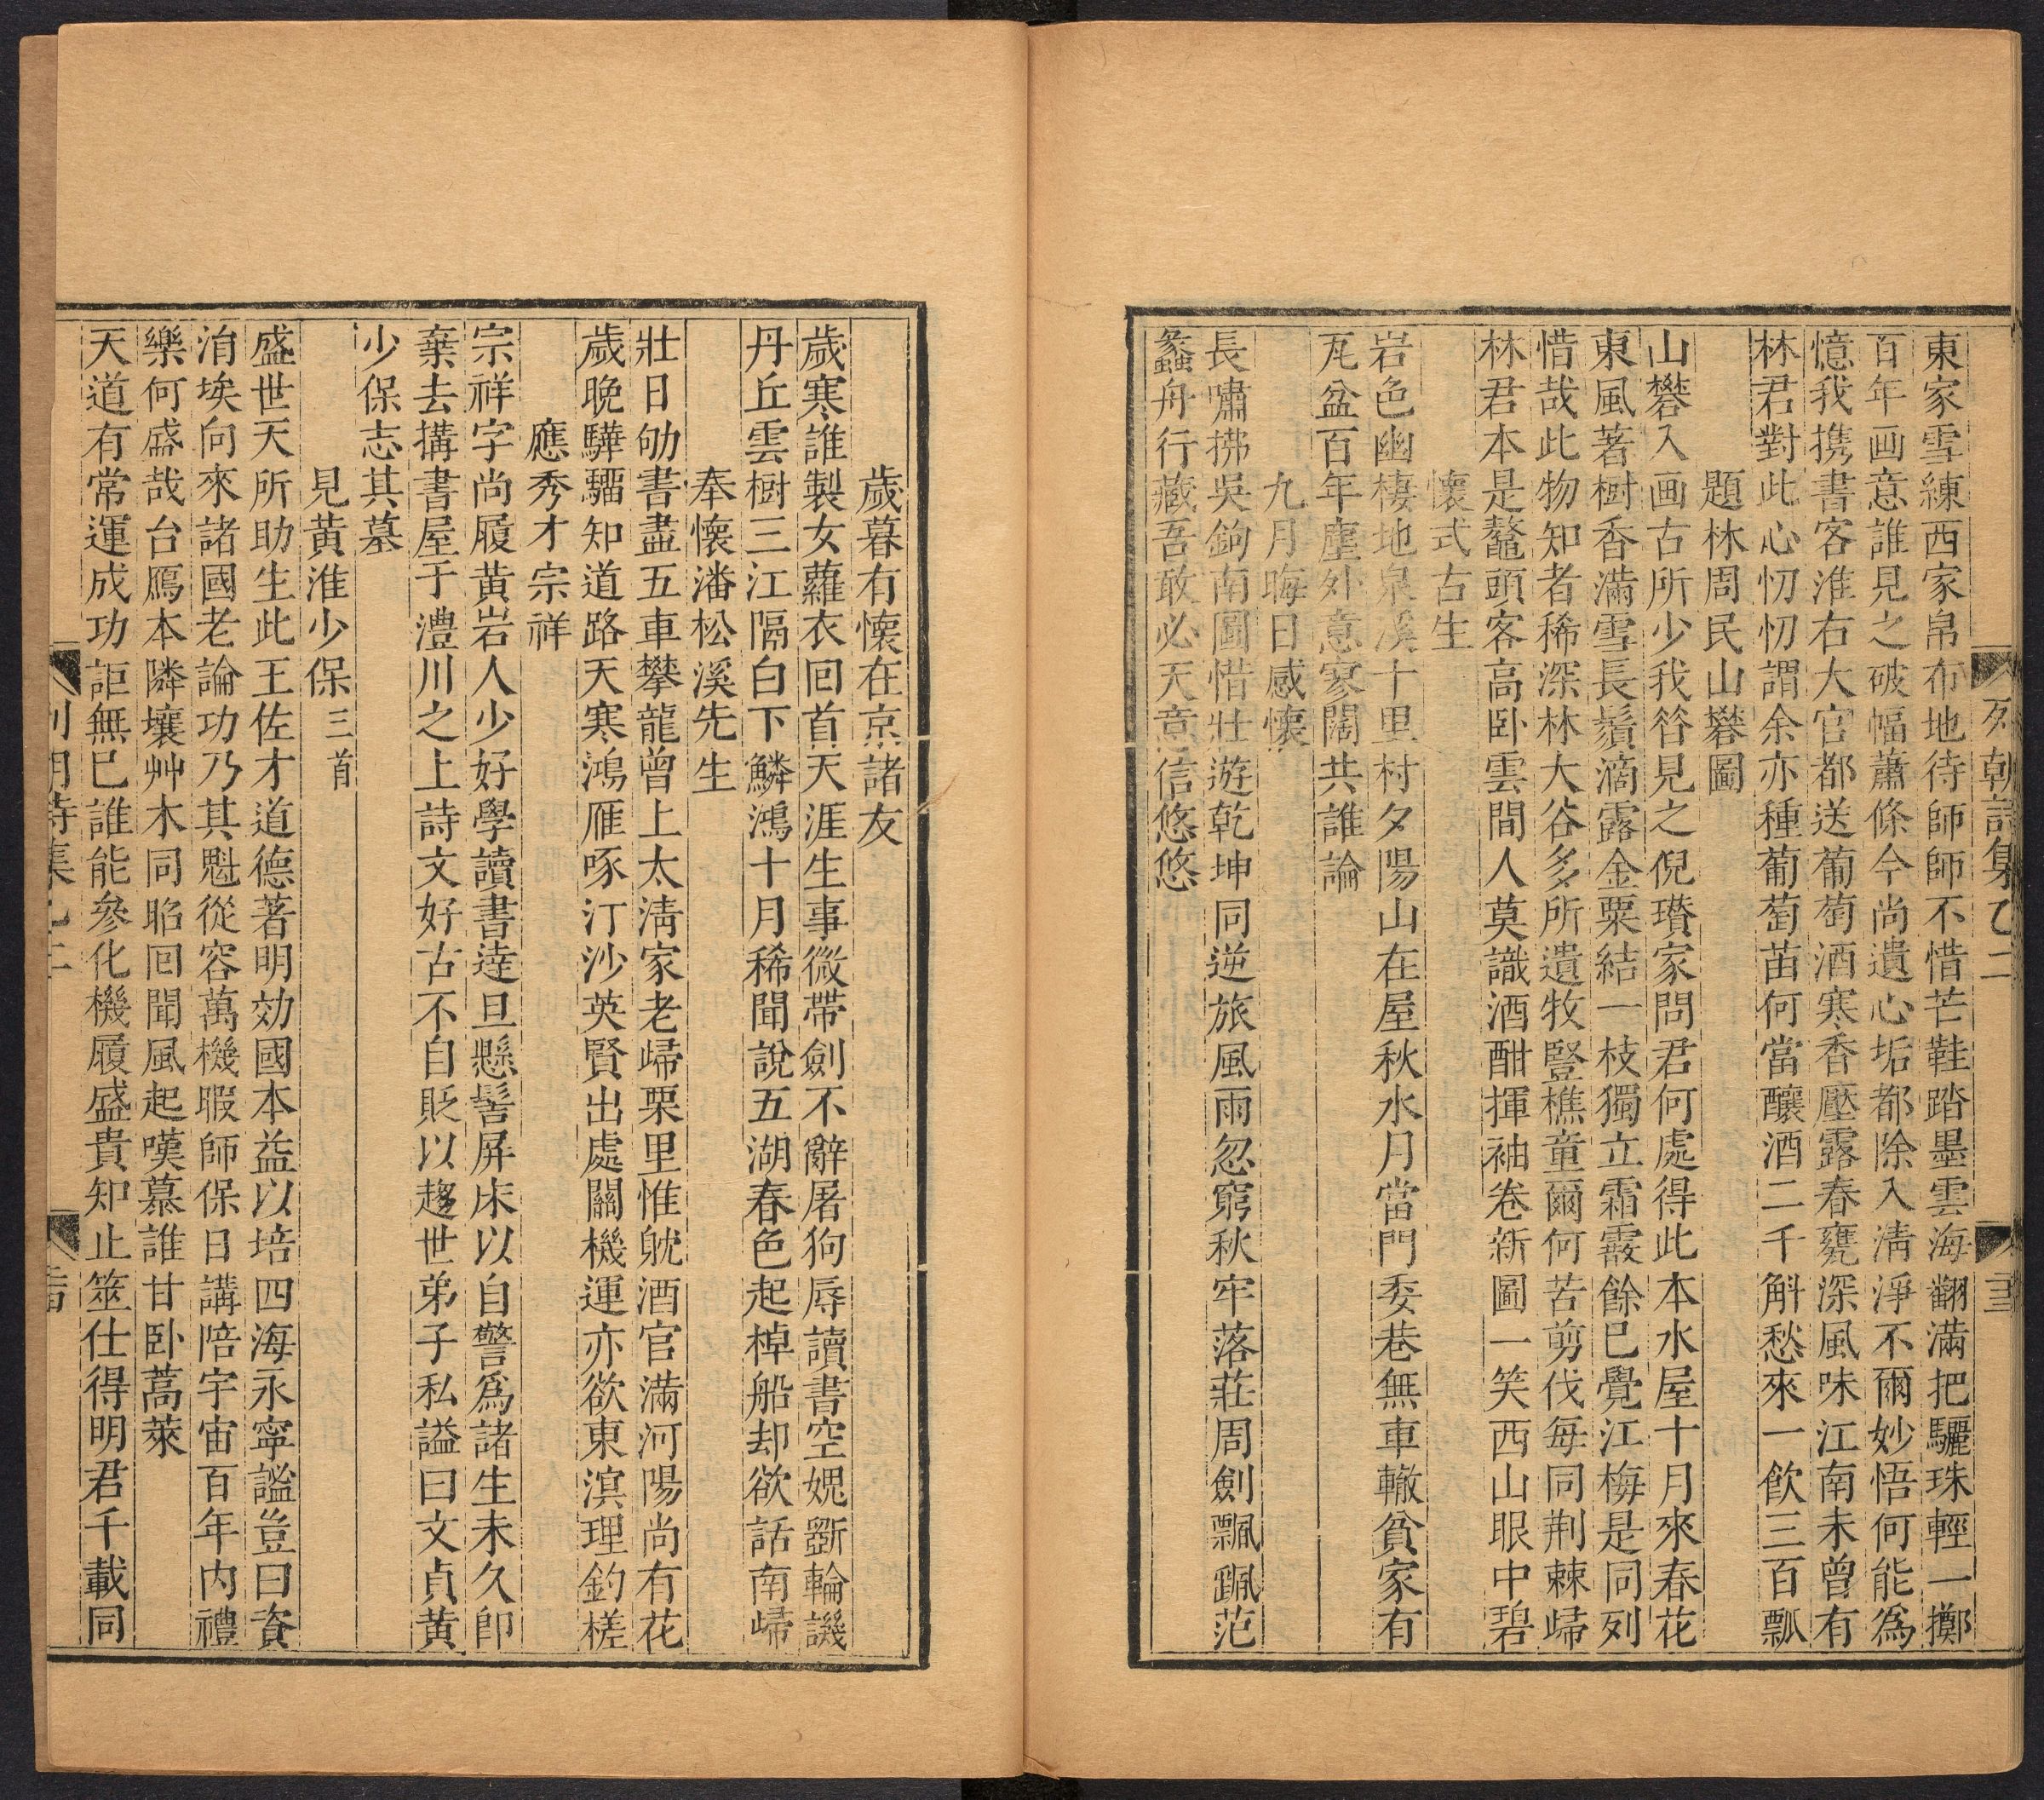 列朝詩集乙二
東家雪練西家帛布地待師師不惜芒鞋踏墨雲海翻滿把驪珠輕一擲
百年画意誰見之破幅蕭條今尚遺心垢都除入淸淨不爾妙悟何能爲
憶我携書客淮右大官都送葡萄酒寒香壓露春甕深風味江南未曾有
林君對此心忉忉謂余亦種葡萄苗何當釀酒二千斛愁來一飲三百瓢
題林周民山礬圖
山礬入画古所少我昝見之倪瓚家問君何處得此本水屋十月來春花
東風著樹香滿雪長鬚滴露金粟結一枝獨立霜霰餘已覺江梅是同列
惜哉此物知者稀深林大谷多所遺牧豎樵童爾何苦剪伐每同荆棘歸
林君本是鼇頭客高卧雲間人莫識酒酣揮袖卷新圖一笑西山眼中碧
懷式古生
岩色幽棲地泉溪十里村夕陽山在屋秋水月當門委巷無車轍貧家有
瓦盆百年塵外意寥闊共誰論
九月晦日感懷
長嘯拂吳鉤南圖惜壯遊乾坤同逆旅風雨忽窮秋牢落莊周劍飄飄范
蠡舟行藏吾敢必天意信悠悠
歲暮有懷在京諸友
歲寒誰製女蘿衣回首天涯生事微帶劍不辭屠狗辱讀書空媿斲輪譏
丹丘雲樹三江隔白下鱗鴻十月稀聞說五湖春色起棹船却欲話南歸
奉懷潘松溪先生
壯日劬書盡五車攀龍曾上太淸家老歸栗里惟躭酒官滿河陽尚有花
歲晚驊騮知道路天寒鴻雁啄汀沙英賢出處關機運亦欲東溟理釣槎
應秀才宗祥
宗祥字尚履黃岩人少好學讀書達旦懸髻屏床以自警爲諸生未久卽
棄去搆書屋于澧川之上詩文好古不自貶以趨世弟子私謚曰文貞黃
少保志其墓
見黃淮少保三首
盛世天所助生此王佐才道德著明効國本益以培四海永寧謐豈曰資
涓埃向來諸國老論功乃其魁從容萬機暇師保日講陪宇宙百年內禮
樂何盛哉台鴈本隣壤艸木同昭回聞風起嘆慕誰甘卧蒿萊
天道有常運成功詎無已誰能參化機履盛貴知止筮仕得明君千載同